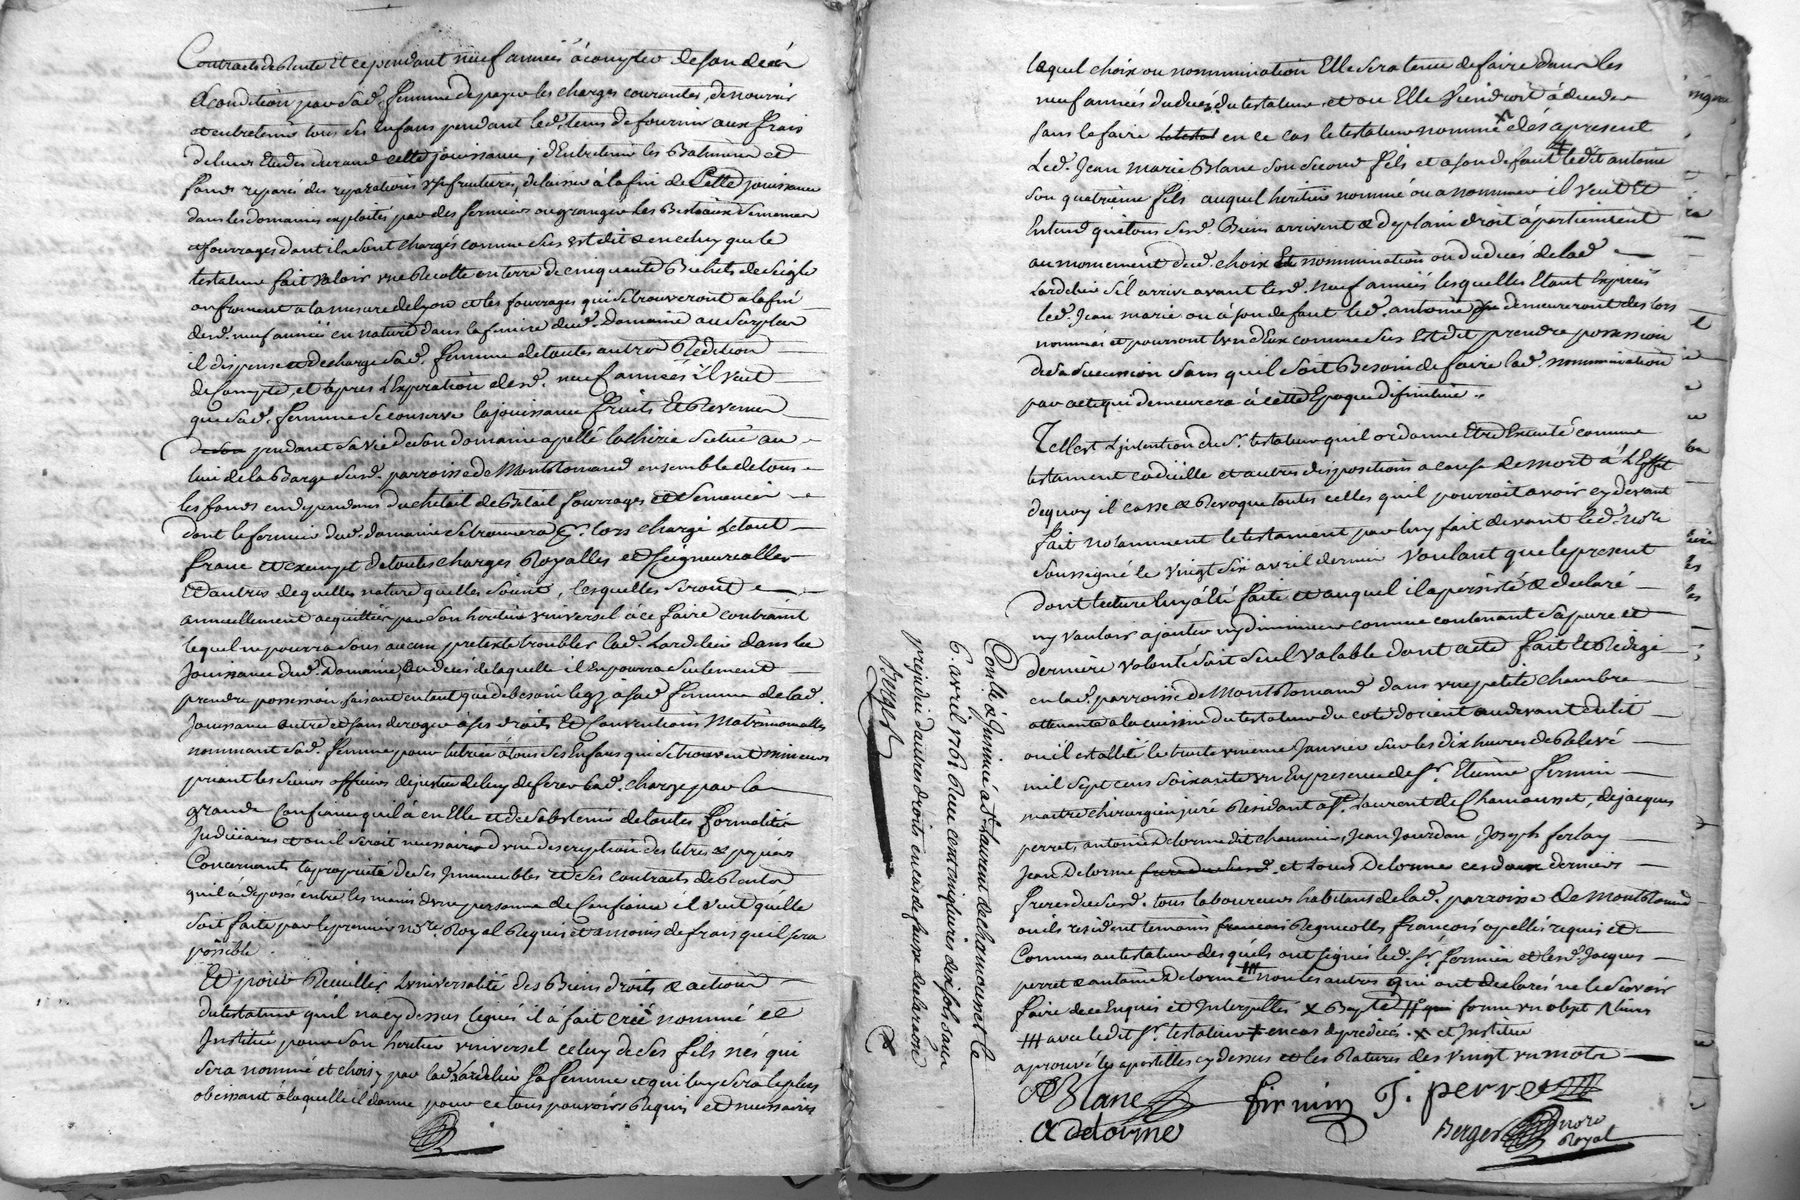 Contracts de Rente et ce pendant neuf années à compter de son décés
à condition par sad. femme de payer les charges courantes, de nourrir
et entretenir tous ses Enfans pendant led. tems de fournir aux frais
de leurs Etudes durant cette jouissance, d'Entretenir les Batimens et
fonds reparés de reparations usufruitieres, de laisser à la fin de Cette jouissance
dans les domaines exploités par des fermiers ou granger les Bestiaux semences
et fourrages dont ils sont chargés comme sus est dit & en celuy que le
testateur fait valoir une Recolte en terre de cinquante Bichets de Seigle
ou froment a la mesure de Lyon et les fourrages qui se trouveront a la fin
desd. neuf année en nature dans la feniere dud. Domaine au surplus
il dispense et decharge sad. femme de toutes autres Redition
de Compte, et apres l'Expiration desd. neuf années il veut
que sad. femme se conserve la jouissance fruits et Revenus
pendant sa vie de son domaine apellé situé au
lieu de la Barge susd. parroisse de Montromand ensemble de tous
les fonds en dependans du cheteil de Betail fourrages et semences
dont le fermier dud. domaine se trouvera pr. lors chargé le tout
franc et exempt de toutes charges Royalles et Seigneurialles
et autres de quelles nature quelles soient, lesquelles seront
annuellement acquittées par son heritier universel à ce faire contraint
lequel ne pourra sous aucun pretexte troubler lad. Lardelier dans la
Jouissance dud. Domaine, du decés de laquelle il en pourra seulement
prendre possession faisant en tent que de besoin legz à sad. femme de lad.
Jouissance outre et sans deroger à ses droits et Conventions Matrimonialles
nommant sad. femme pour tutrice à tous ses Enfans qui se trouveront mineurs
priant les sieurs officiers de justice de luy deferer lad. charge par la
grande Confiance qu'il à en Elle et de s'abstenir de toutes formalités
Judiciaires et ou il seroit necessaire d'une description des titres et papiers
Concernant la propriété de ses Immeubles et ses contracts de Rente
qu'il à deposés entre les mains d'une personne de Confiance il veut qu'elle
soit faite par le premier nore. Royal Requis et a moins de frais qu'il sera
possible.
Et pour Recuillir l'universalité des Biens droits & actions
du testateur qu'il n'a cy dessus legués il à fait créé nommé et
Institué pour son heritier universel celuy de ses fils nés qui
sera nommé et choisy par lad. Lardelier sa femme et qui luy sera le plus
obeissant à laquelle il donne pour ce tous pouvoirs Requis et necessaires
laquel choix ou nommination Elle sera tenue de faire dans les
neuf années du decés du testateur et ou Elle viendroit à deceder
sans la faire en ce cas le testateur nomme x dés apresent
led. Jean Marie Blanc son second fils et a son defaut ledit antoine
son quatrieme fils auquel heritier nommé ou a nommer il veut et
Entend que tous sesd. Biens arrivent & de plain droit apartiennent
au momement dud. choix et nommination ou du decés de lad.
Lardelier s'il arrive avant lesd. neuf années lesquelles Etant Expirés
led. Jean marie ou à son defaut led. antoine demeureront des lors
nommés et pourront l'un d'Eux comme sus Est dit prendre possession
de sa succession sans qu'il soit Besoin de faire lad. nommination
par acte qui demeurera à cette Epoque difinitive.
Tell est l'intention du Sr. testateur qu'il ordonne Etre Executé comme
testament codicille et autres dispositions a cause de mort à l'Effet
de quoy il casse & Revoque toutes celles qu'il pourroit avoir cy devant
fait notamment le testament par luy fait devant led. nore
soussigné le vingt six avril dernier voulant que le present
dont lecture luy à Eté faite et auquel il a persisté & declaré
n'y vouloir ajouter ny diminuer comme contenant sa pure et
derniere volonté soit seul valable dont acte fait et Redigé
en lad. parroisse de Montromand dans une petite chambre
attenante a la cuisine du testateur du coté d'orient au devant du lit
ou il est allité le trente unieme Janvier sur les dix heures de Relevé
mil sept cens soixante un En presence de Sr. Etienne fermin
maitre chirurgien juré Residant a St. Laurent de Chamousset, de jacques
perret, antoine Delorme dit chaumier, Jean Jourdan, Joseph ferlay
Jean Delorme et Louis Delorme ces deux derniers
freres du susd. tous laboureurs habitans de lad. parroisse de Montromand
ou ils resident temoins Regnicolles françois apellés requis et
Connus au testateur desquels ont signés led. Sr. fermin et lesd. Jacques
perret & antoine Delorme non les autres qui ont declarés ne le sçavoir
faire de ce Enquis et Interpellés x
avec ledit Sr. testateur en cas de predecés. x et Institue
aprouvé les apostilles cy dessus et les Ratures des vingt un mots
Blanc firmin J. perret
A delorme Berger nore Royal
Conllé & Insinué a St. Laurent de chamousset le
6. avril 1761 Reçu cent cinq livres dix sols sauf
prejudice d'autres droits en cas de fausse declaration
Berger